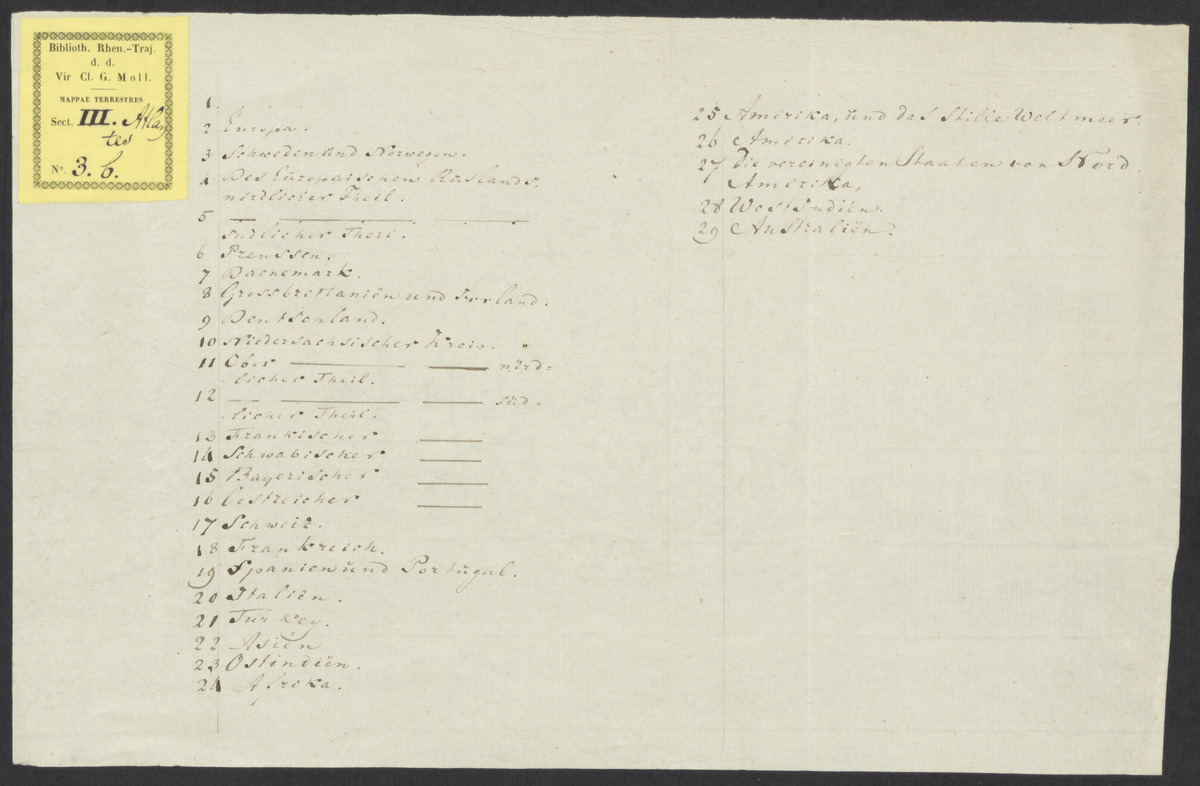 Biblioth. Rhen.-Traj.
d. d.
Vir Cl. G. Moll.
MAPPAE TERRESTRES
Sect. III. Atlan
tes
No. 3. b.
1
2 Europa.
3 Schweden und Norwegen.
4 Des Europaischen Ruslands,
nördlicher Theil.
5 — —— ——
sudlicher Theil.
6 Preussen.
7 Daenemark.
8 Grossbrittaniën und Irrland.
9 Deutschland.
10 Niedersachsischer Kreis.
11 Ober —— — nörd=
licher Theil.
12 — —— — süd-
licher Theil.
13 Frankischer —
14 Schwabischer —
15 Bayerischer —
16 Oestreicher —
17 Schweiz.
18 Frankreich.
19 Spanien und Portugal.
20 Italiën.
21 Turkey.
22 Asiën
23 Ostindiën.
24 Afrika.
25 Amerika, und das Stille Weltmeer.
26 Amerika.
27 Die vereinegten Staaten von Nord
Amerika,
28 West Indiën.
29 Australiën.